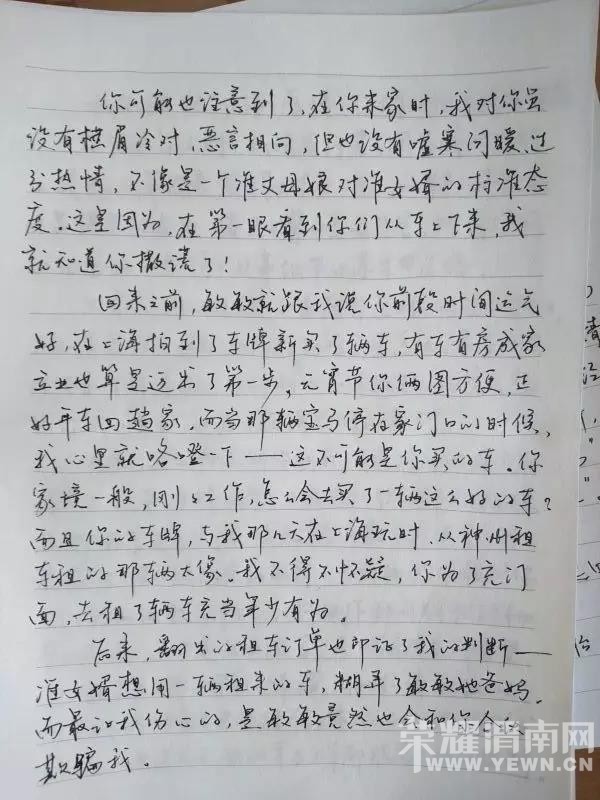 你可能也注意到了，在你来家时，我对你虽
没有横眉冷对，恶言相向，但也没有嘘寒问暖，过
分热情，不像是一个准丈母娘对准女婿的标准态
度。这是因为，在第一眼看到你们从车上下来，我
就知道你撒谎了！
回来之前，敏敏就跟我说你前段时间运气
好，在上海拍到了车牌新买了辆车，有车有房成家
立业也算是迈出了第一步。元宵节你俩图方便，正
好开车回趟家，而当那辆宝马停在家门口的时候，
我心里就咯噔一下——这不可能是你买的车。你
家境一般，刚工作，怎么会去买了一辆这么好的车？
而且你的车牌，与我那几天在上海玩时，从神州租
车租的那辆太像。我不得不怀疑，你为了充门
面，去租了辆车充当年少有为。
后来，翻出的租车订单也印证了我的判断——
准女婿想用一辆租来的车，糊弄了敏敏她爸妈。
而最让我伤心的，是敏敏竟然也会和你合伙
欺骗我。
荣耀渭南网
WWW.YEWN.CN